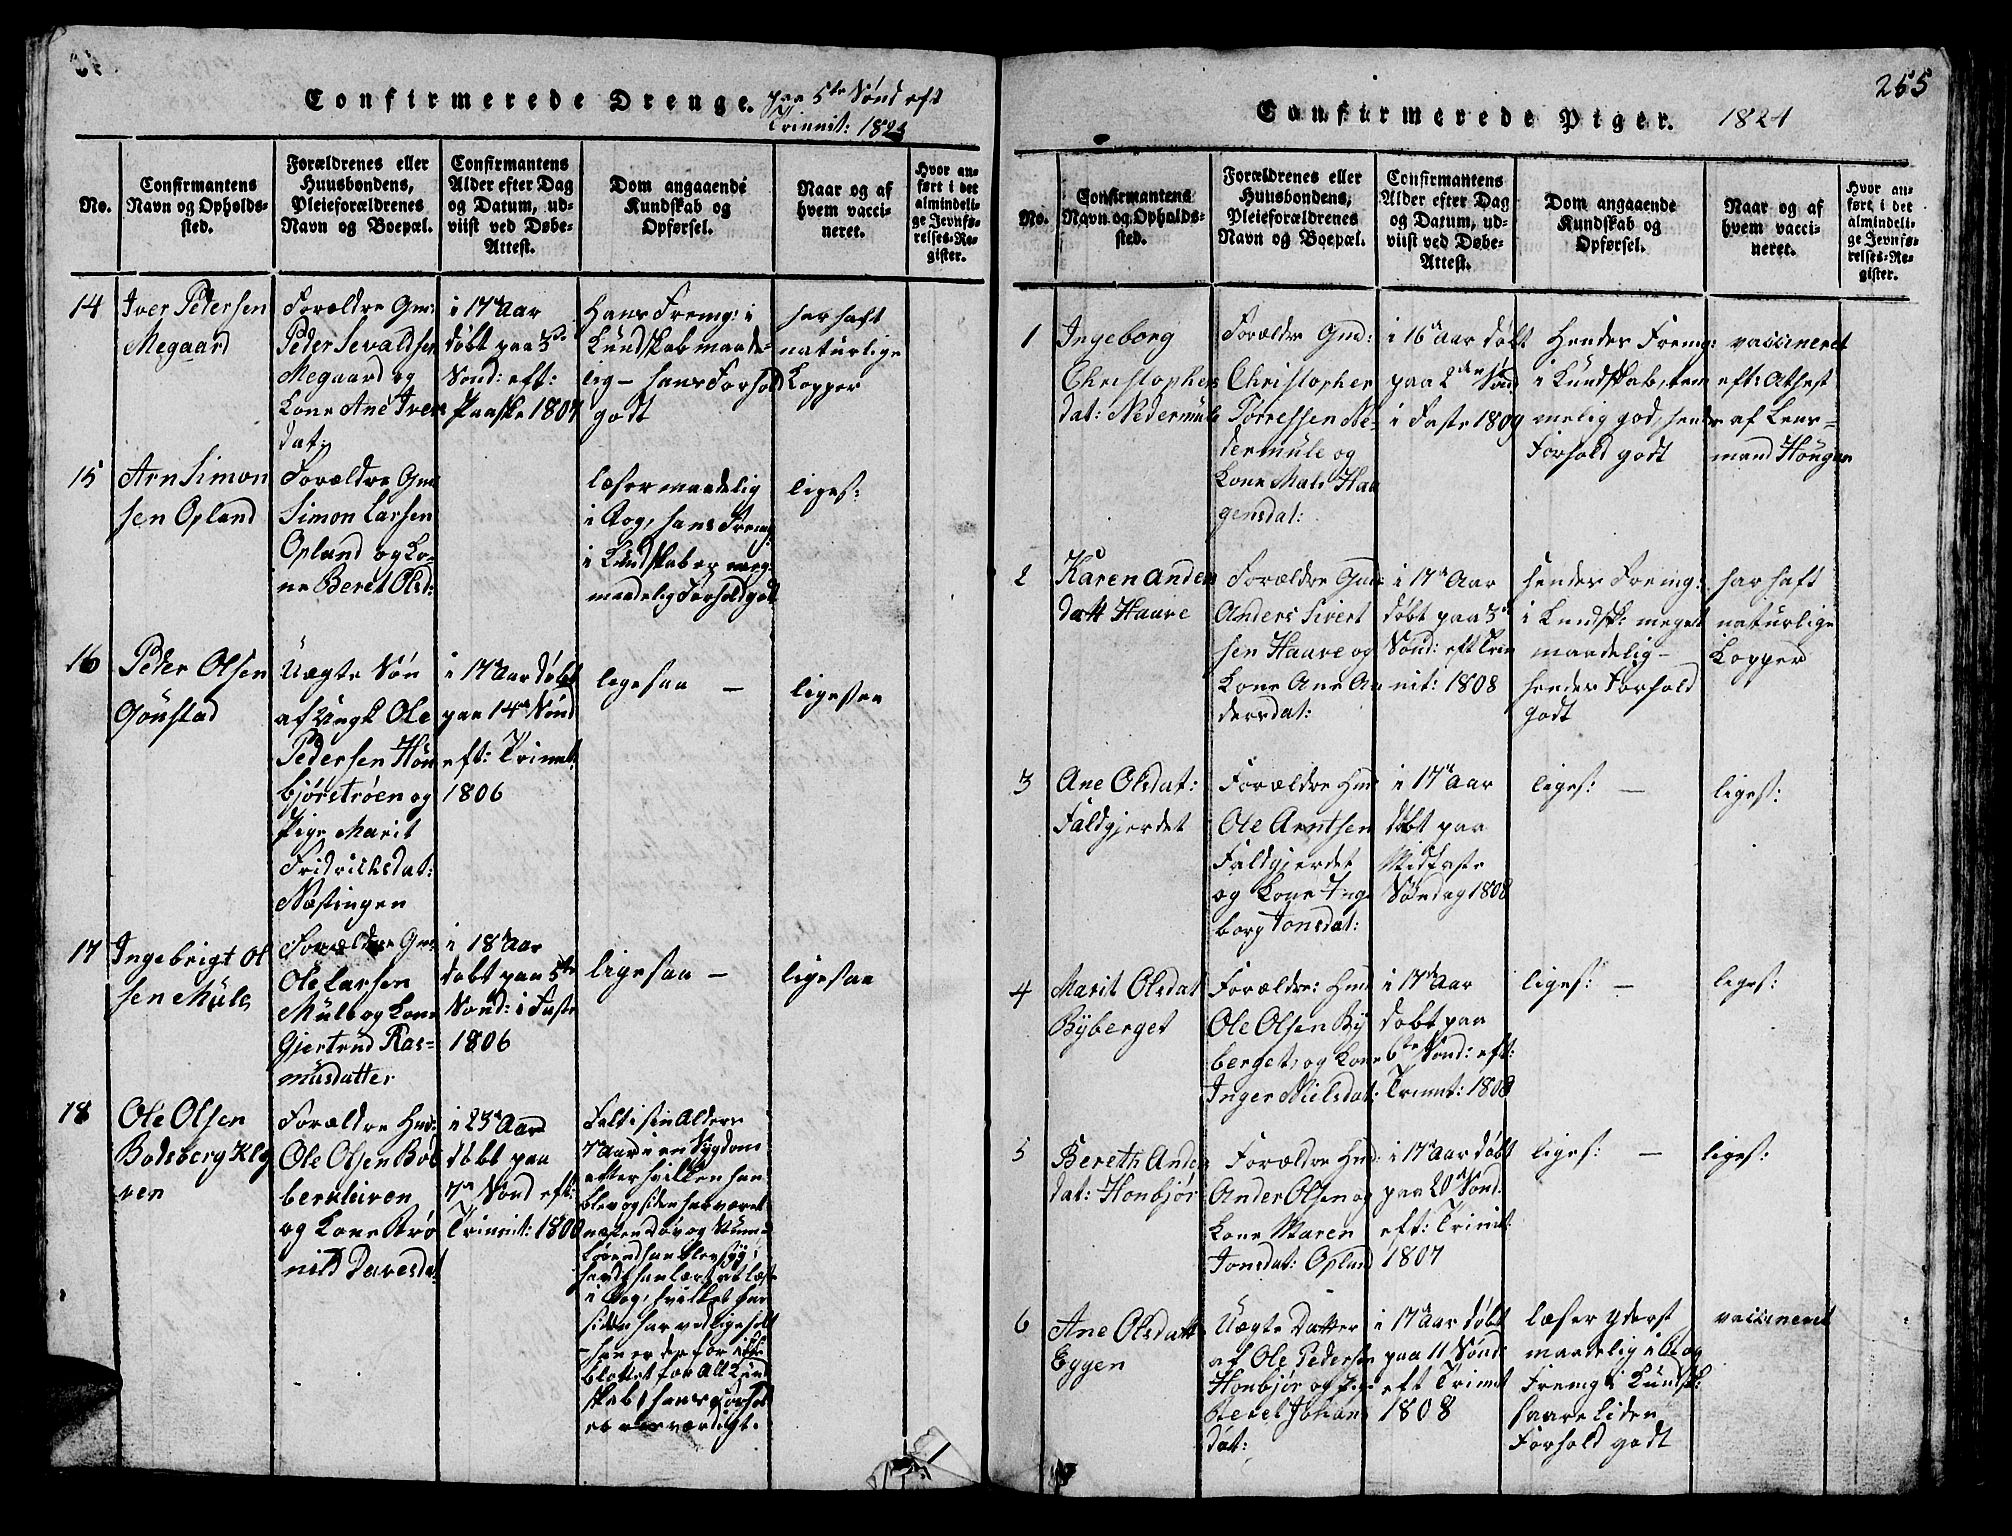 Confirmerede Drenge. paa 5te Sønd eft
Trinnit: 1824
No.
Confirmantens
Navn og Opholds-
sted.
Forældrenes eller
Huusbondens,
Pleieforældrenes
Navn og Boepæl.
Confirmantens
Alder efter Dag
og Datum, ud-
viist ved Døbe-
Attest.
Dom angaaende
Kundskab og
Opførsel.
Naar og af
hvem vacci-
neret.
Hvor an-
ført i det
almindeli-
ge Jevnfø-
relses-Re-
gister.
14
Iver Pedersen
Megaard
Forældre Gm:
Peder Sevaldsen
Megaard og
Kone Ane Ivers
dat:
i 17de Aar
døbt paa 3de
Sønd: eft:
Paaske 1807
Hans Fremg: i
Kundskab maade-
lig – hans Forhold
godt
har haft
naturlige
Kopper
15
Arn Simon
sen Opland
Forældre Gm
Simon Larsen
Opland og Ko-
ne Beret Olsd:
læser maadelig
i Bog, hans Fremg:
i Kundskab er meg:
maadelig Forhold godt
liges:
16
Peder Olsen
Gønstad
Uægte Søn
af Ungk Ole
Pedersen Høn
bjørstrøen og
Pige Marit
Fridrichsdat:
Næstingen
i 17de Aar døbt
paa 14de Sønd
eft: Trinnit:
1806
ligesaa –
ligesaa
17
Ingebrigt Ol
sen Mule
Forældre Gm:
Ole Larsen
Mule og Kone
Gjertrud Ras-
musdatter
i 18de Aar
døbt paa 5te
Sønd: i Faste
1806
ligesaa –
ligesaa
18
Ole Olsen
Bodsberg Klø
ven
Forældre Hm:
Ole Olsen Bods
bergkleven
og Kone Brø
nild Davesdat
i 23de Aar
døbt paa
7de Sønd eft:
Trinnit: 1800
Falt i sin Alders
7de Aar i en Sygdom
efter hvilken han
blev og siden har været
næsten døv og stum –
førend han blev syg,
havde han lært at læse
i Bog, hvilket han
siden har vedligeholdt
– han er derfor ikke
blottet for All Kund
skab, hans Forhold
er

Confirmerede Piger. 1824
255
No.
Confirmantens
Navn og Opholds-
sted.
Forældrenes eller
Huusbondens,
Pleieforældrenes
Navn og Boepæl.
Confirmantens
Alder efter Dag
og Datum, ud-
viist ved Døbe-
Attest.
Dom angaaende
Kundskab og
Opførsel.
Naar og af
hvem vacci-
neret.
Hvor an-
ført i det
almindeli-
ge Jevnfø-
relses-Re-
gister.
1
Ingeborg
Christophers
dat: Nedermule
Forældre Gmd:
Christopher
Torressen Ne-
dermule og
Kone Mali Haa
gensdat:
i 16de Aar døbt
paa 2den Sønd
i Faste 1809
Hendes Fremg:
i Kundskab, tem
melig god, hendes
Forhold godt
vaccineret
eft: Athest
af Lens-
mand Hougan
2
Karen Anders
datt Haave
Forældre Gmd:
Anders Sivert
sen Haave og
Kone Ane An
dersdat:
i 17de Aar
døbt paa 3de
Sønd: eft Trin
nit: 1808
Hendes Fremg:
i Kundsk: meget
maadelig –
hendes Forhold
godt
har haft
naturlige
Kopper
3
Ane Olsdat:
Faldgjerdet
Forældre Hm:
Ole Arntsen
Faldgjerdet
og Kone Inge
borg Jonsdat:
i 17de Aar
døbt paa
Midfaste
Søndag 1808
liges: –
liges:
4
Marit Olsdat
Byberget
Forældre: Hm
Ole Olsen By
berget, og Kone
Inger Nielsdat:
i 17de Aar
døbt paa
6te Sønd: eft:
Trinnit: 1808
liges: –
liges:
5
Bereth Anders
dat: Honbjør
Forældre Hmd:
Ander Olsen og
Kone Maren
Jonsdat: Opland
i 17de Aar døbt
paa 20de Sønd:
eft: Trinnit
1807
liges: –
liges:
6
Ane Olsdatt
Eggen
Uægte Datter
af Ole Pedersen
Honbjør og Pige
Johans
dat:
i 17de Aar døbt
paa 11 Sønd:
eft Trinnit
1808
læser yderst
maadelig i Bog
Fremg i Kundsk:
saare liden
Forhold godt
vaccineret